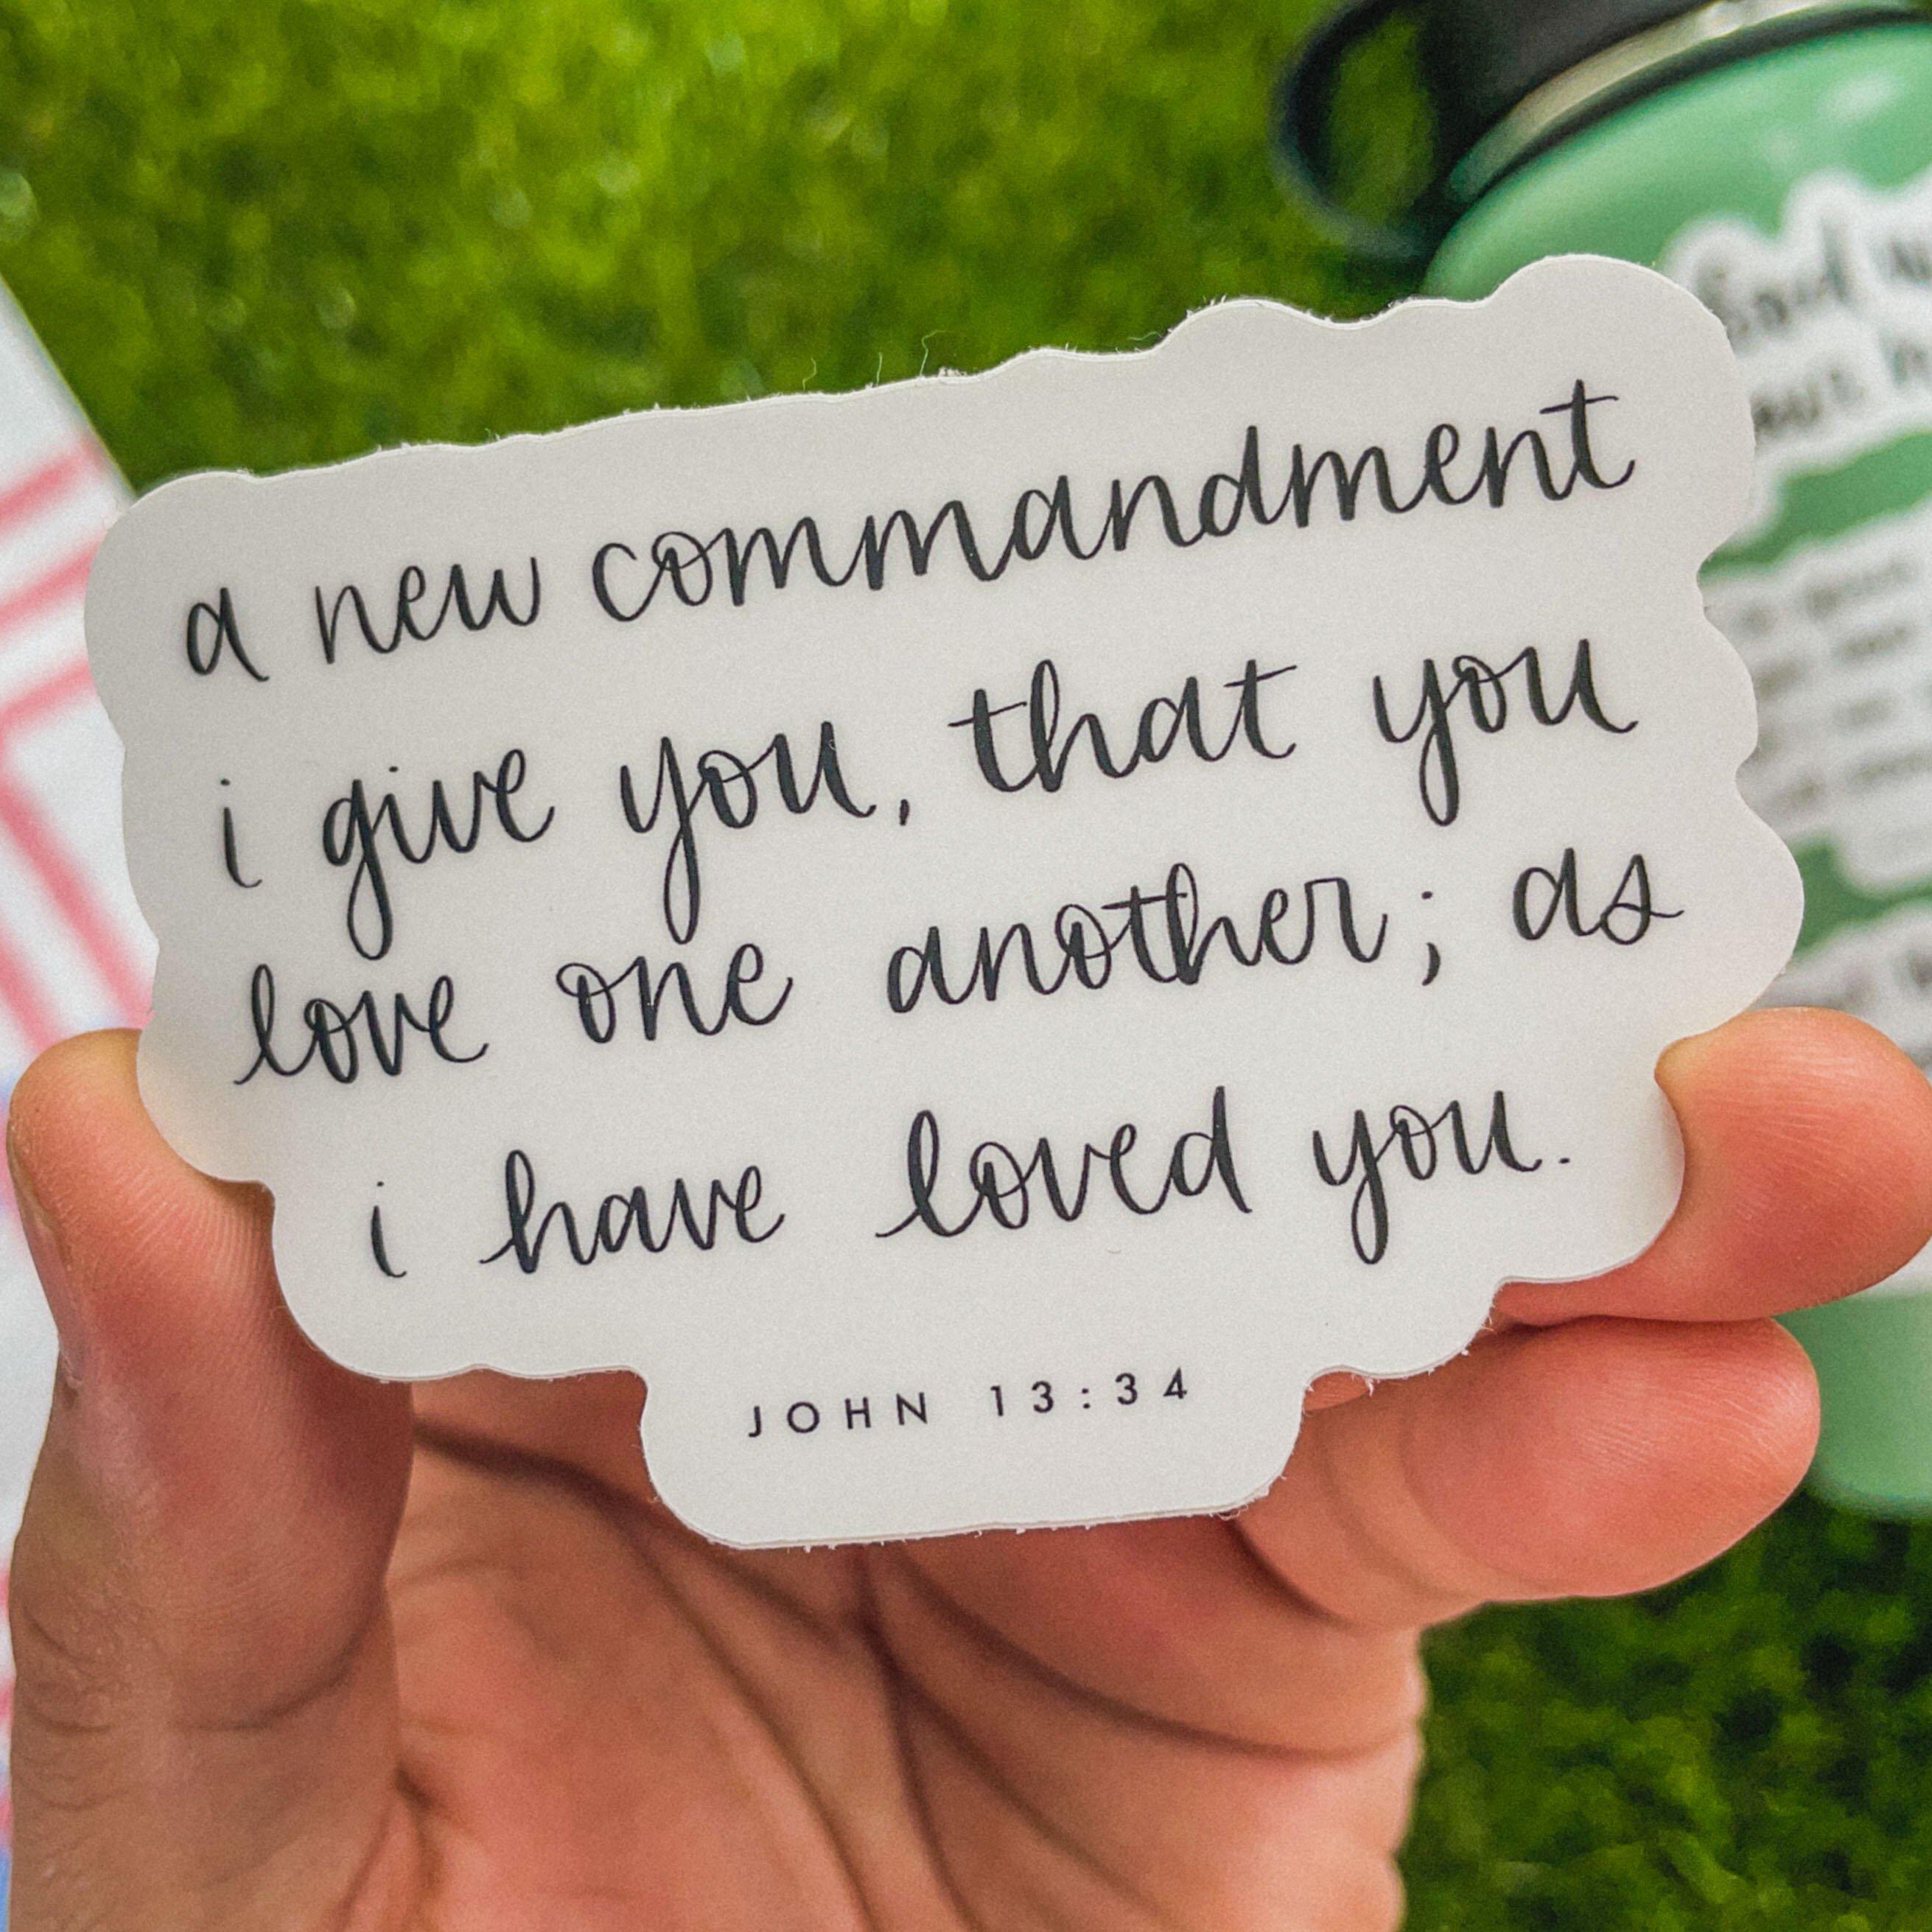 a new commandment
i give you, that you
love one another; as
i have loved you.
JOHN 13:34